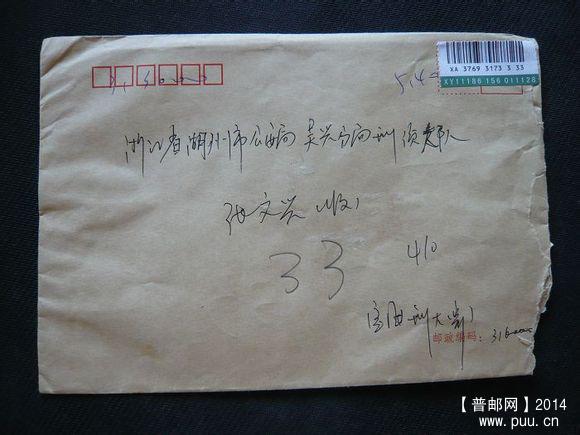 XA 3769 3173 3 33
XY11186 156 01128
313000
浙江省湖州市公安局吴兴分局刑侦大队
张文兴 收
33
410
邮政编码：316000
【普邮网】2014
www.puu.cn